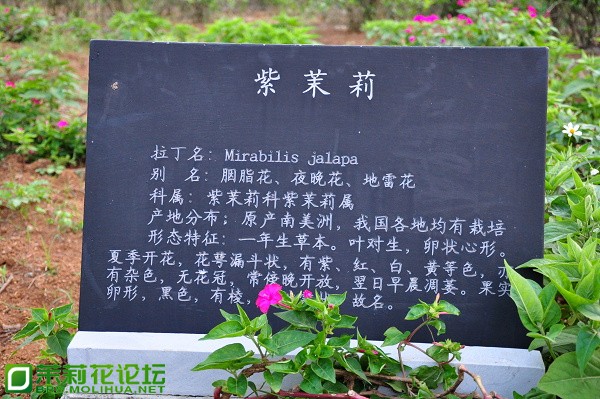 紫茉莉
拉丁名：Mirabilis jalapa
别 名：胭脂花、夜晚花、地雷花
科属：紫茉莉科紫茉莉属
产地分布；原产南美洲，我国各地均有栽培
形态特征：一年生草本。叶对生，卵状心形。
夏季开花，花萼漏斗状，有紫、红、白、黄等色，亦
有杂色，无花冠，常傍晚开放，翌日早晨凋萎。果实
卵形，黑色，有棱，故名。
茉莉花论坛
BBS.MOLIHUA.NET